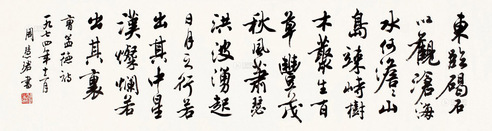 東臨碣石
以觀滄海
水何澹々山
島竦峙樹
木叢生百
草豐茂
秋風蕭瑟
洪波湧起
日月之行若
出其中星
漢燦爛若
出其裏
曹孟德詩
一九七四年十一月
周慧珺書